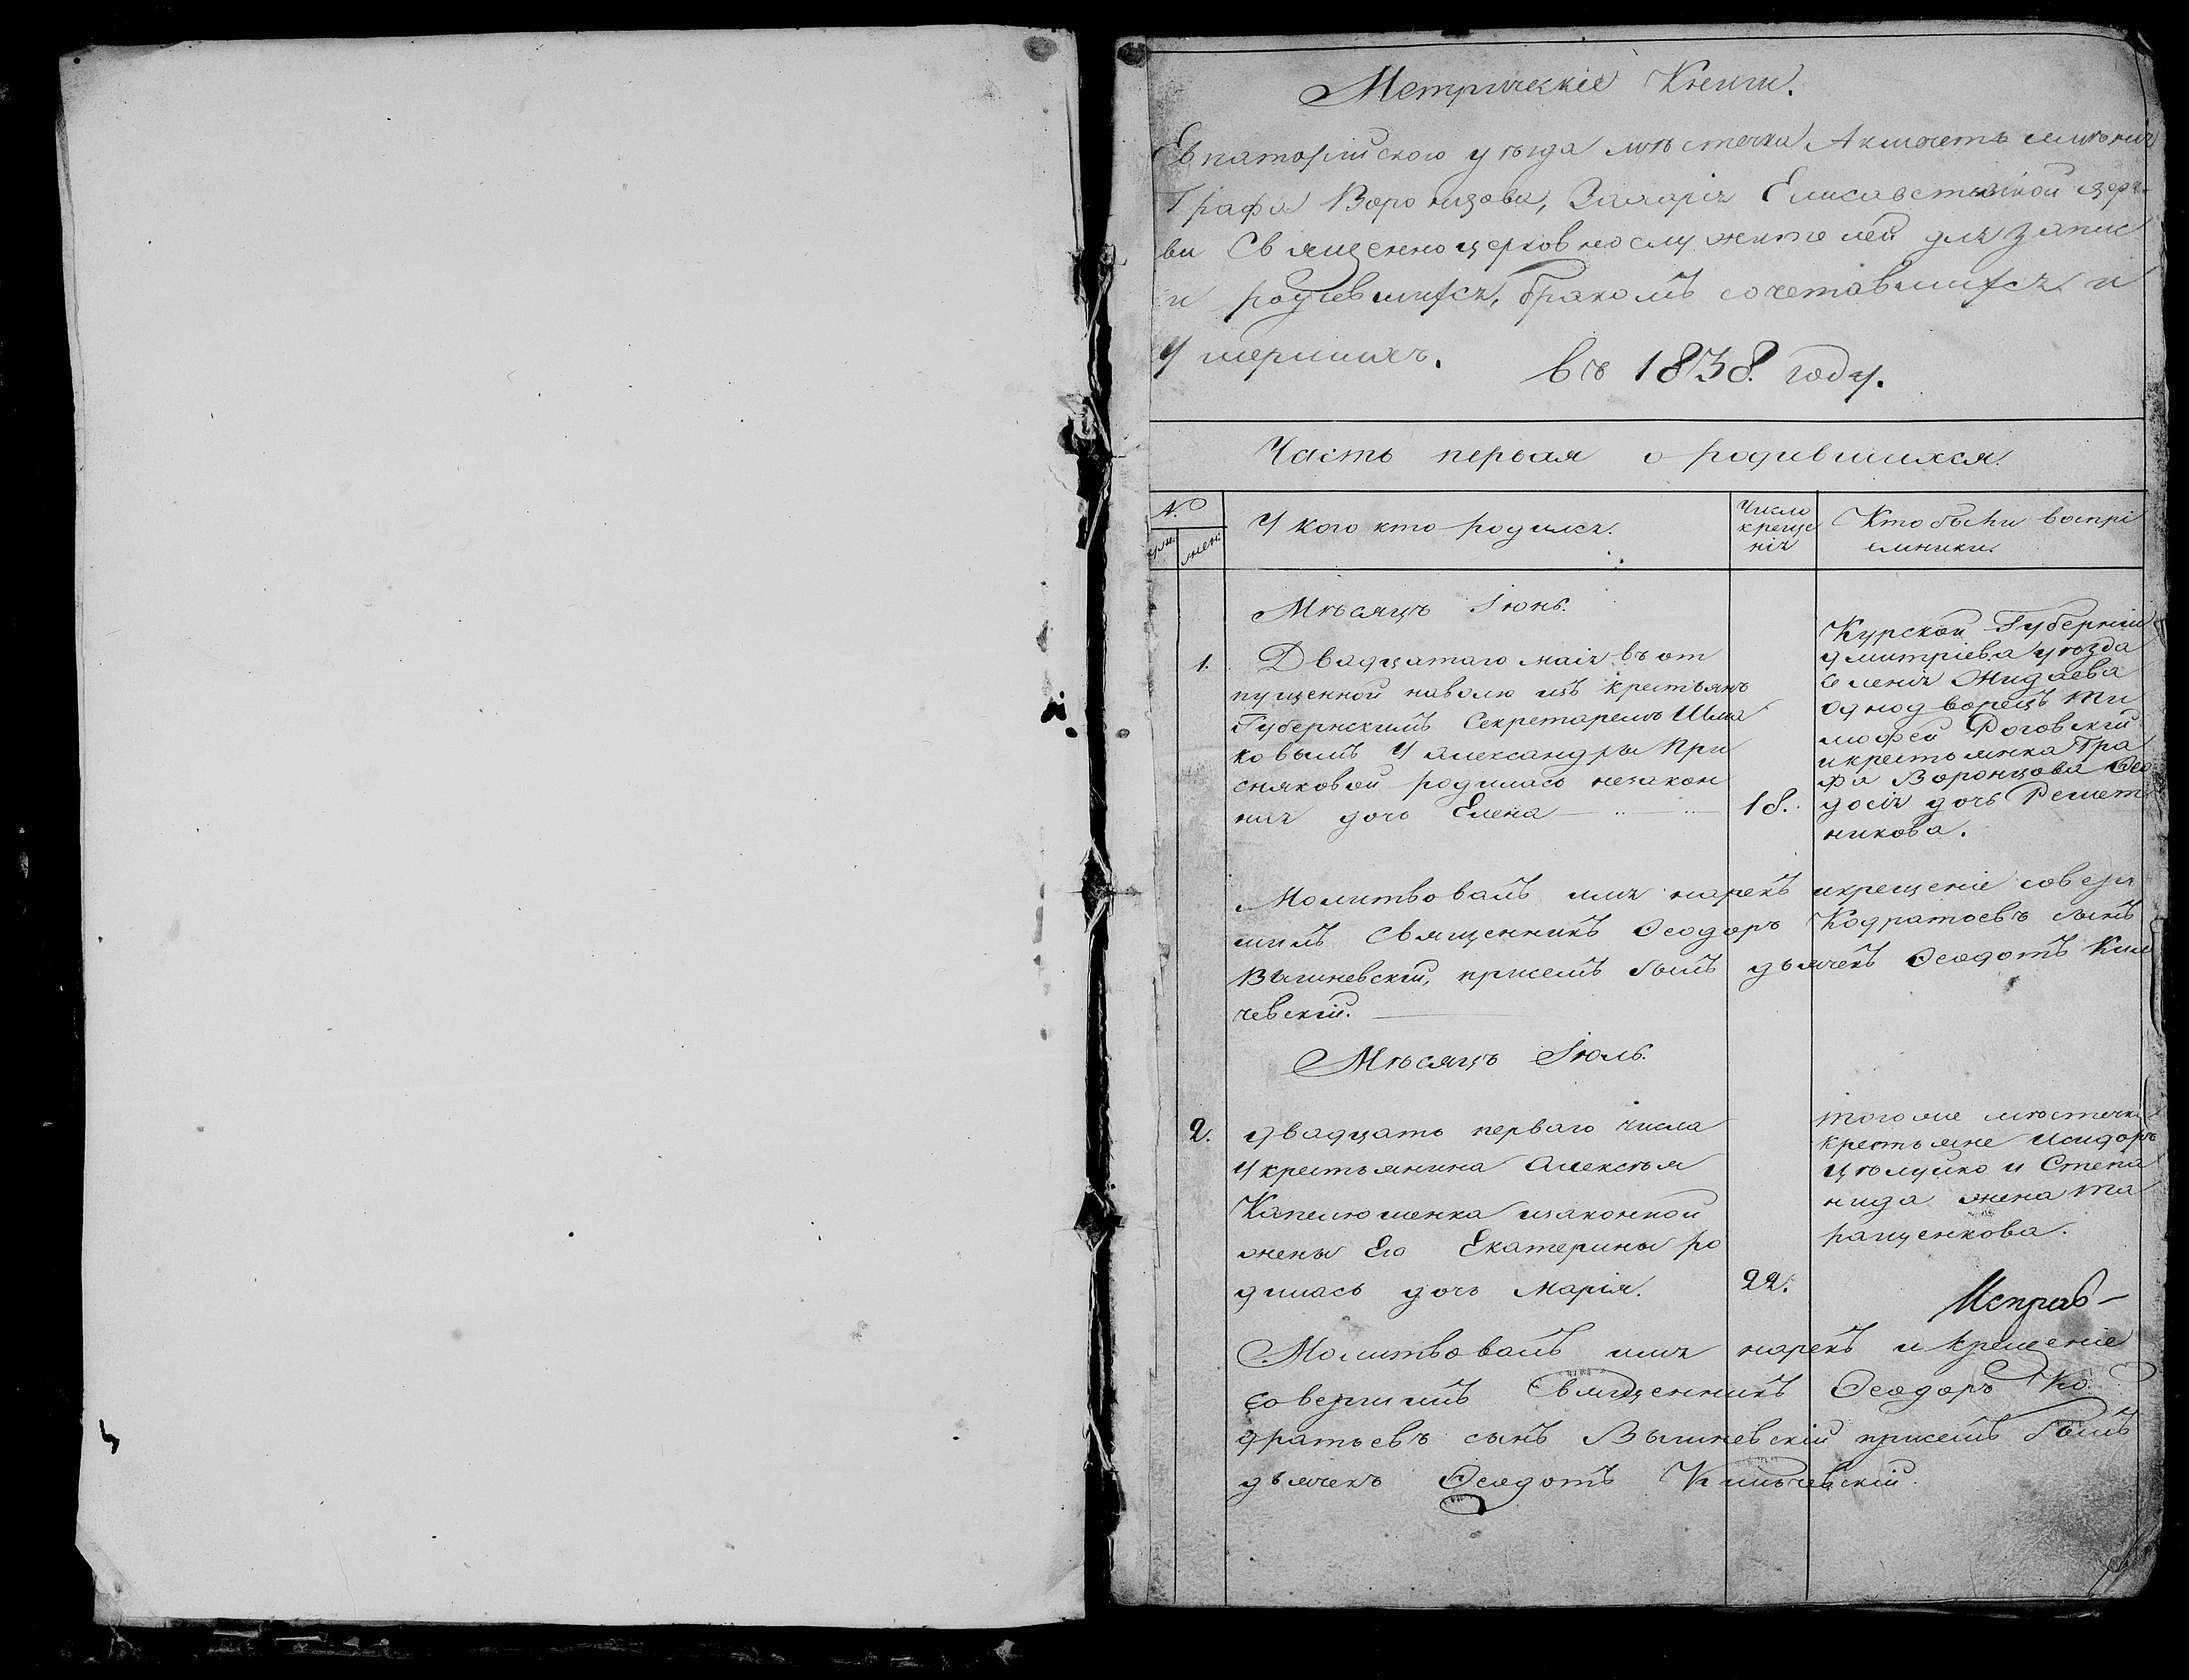 Метрическіе Книги.
Евпаторійского уѣзда мѣстечка Акмечеть имѣнія
Графа Воронцова, Захаріе Елисаветинской церк-
ви Священноцерковнослужителей для запис
и родившихся, бракомъ сочетавшихся и
Умершихъ. въ 1838. году.
Часть первая о родившихся.
№
У кого кто родился.
Число
креще
нія
Кто были воспрі
емники.
муж. жен.
Мѣсяцъ Іюнь.
1. Двадцатаго маія въ от
пущенной наволю изъ крестьянъ
Губернскимъ Секретаремъ Шма
ковымъ У Александры При
сняковой родилась незакон
ная дочь Елена 18.
Курской Губерніи
дмитріева уѣзда
Селенія Жидаева
однодворецъ Ти
мофей Роговскій
и крестьянка Гра
фа Воронцова Ѳео
досія дочь Решет
никова.
Молитвовалъ имя нарекъ и крещеніе совер
шилъ Священникъ Ѳеодоръ Кодратьевъ сынъ
Вышневскій, присемъ былъ дьячекъ Ѳеодотъ Кли
чевскій.
Мѣсяцъ Іюль.
2. двадцать перваго числа
У крестьянина Алексѣя
Капелюшенка изаконной
жены Его Екатерины ро
дилась дочь Марія. 22.
того же мѣстечка
крестьяне Исидоръ
Цѣлуйко и Степа
нида жена Та
ращенкова.
Исправ-
Молитвовалъ имя нарекъ и крещеніе
совершилъ Священникъ Ѳеодоръ Ко
дратьевъ сынъ Вышневскій присемъ былъ
дьячекъ Ѳеодотъ Кличевскій